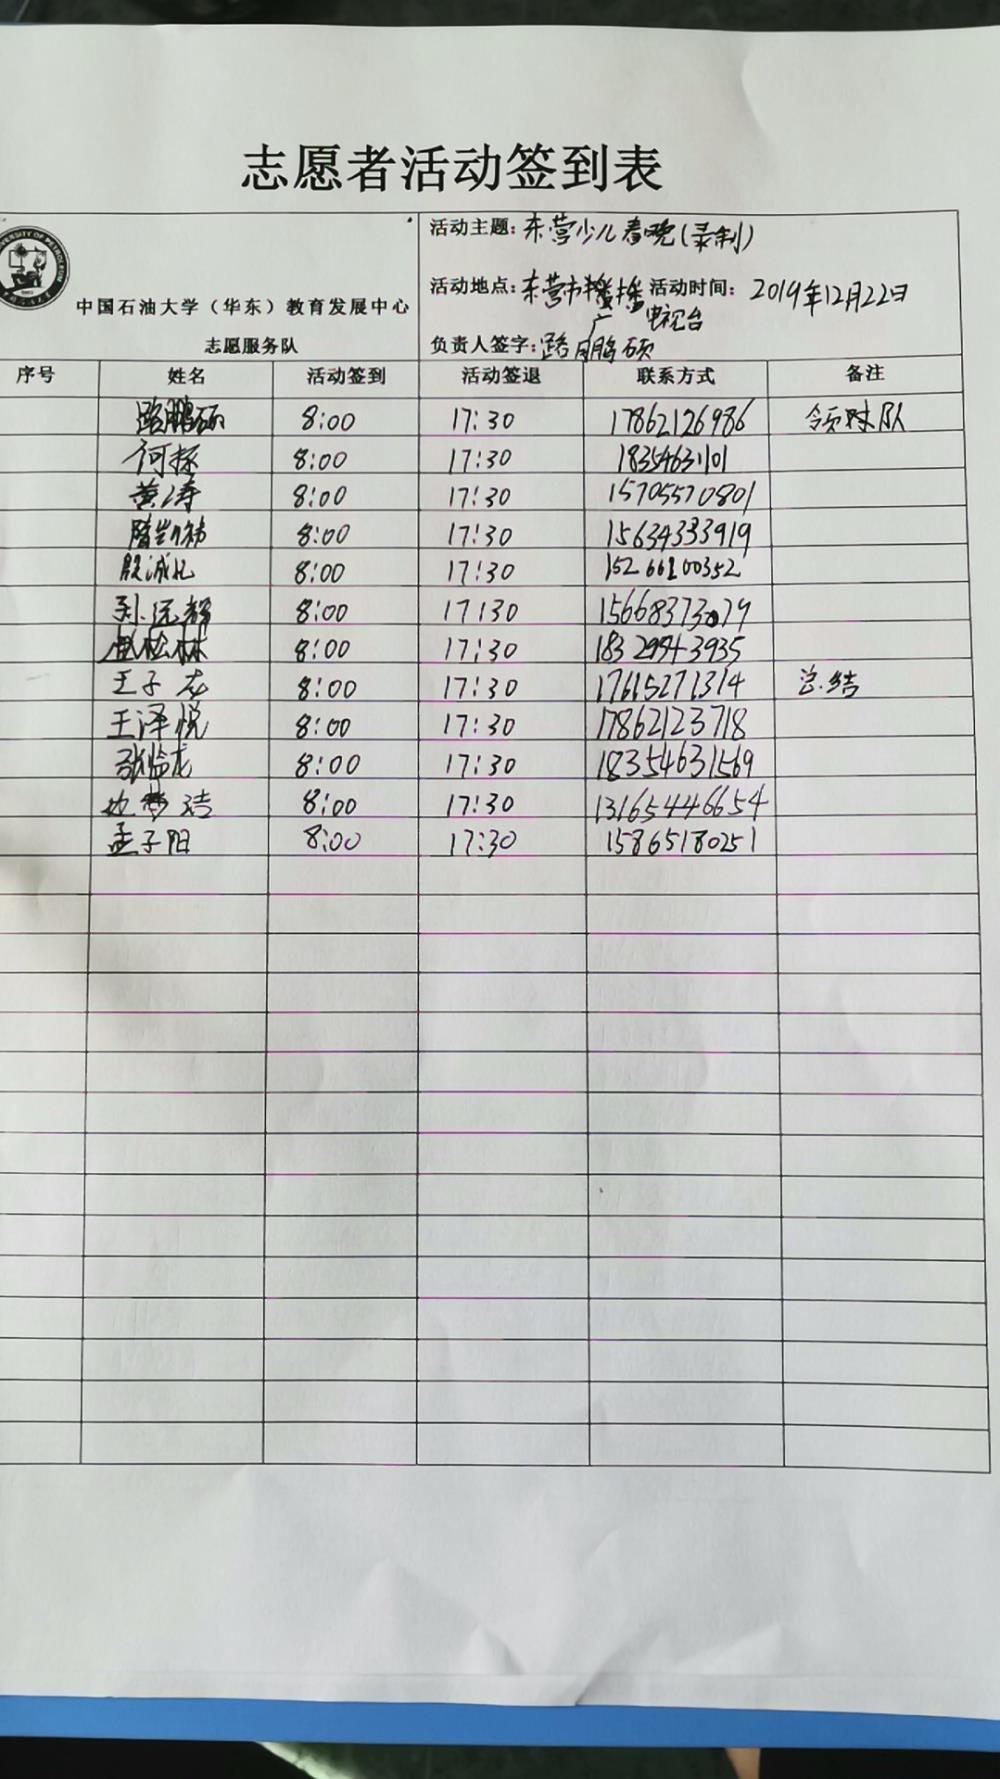 志愿者活动签到表
活动主题：东营少儿春晚（录制）
中国石油大学（华东）教育发展中心
志愿服务队
活动地点：东营市广播电视台 活动时间：2019年12月22日
负责人签字：路鹏硕
序号 姓名 活动签到 活动签退 联系方式 备注
路鹏硕 8:00 17:30 17862126986 领队
何 8:00 17:30 18354631101
黄涛 8:00 17:30 15705570801
隋 8:00 17:30 15634333919
殷 8:00 17:30 15266200352
孙远 8:00 17:30
松林 8:00 17:30
王子龙 8:00 17:30 17615271314 总结
王泽悦 8:00 17:30 17862123718
张 龙 8:00 17:30 18354631569
洁 8:00 17:30 13165446654
孟子阳 8:00 17:30 15865180251